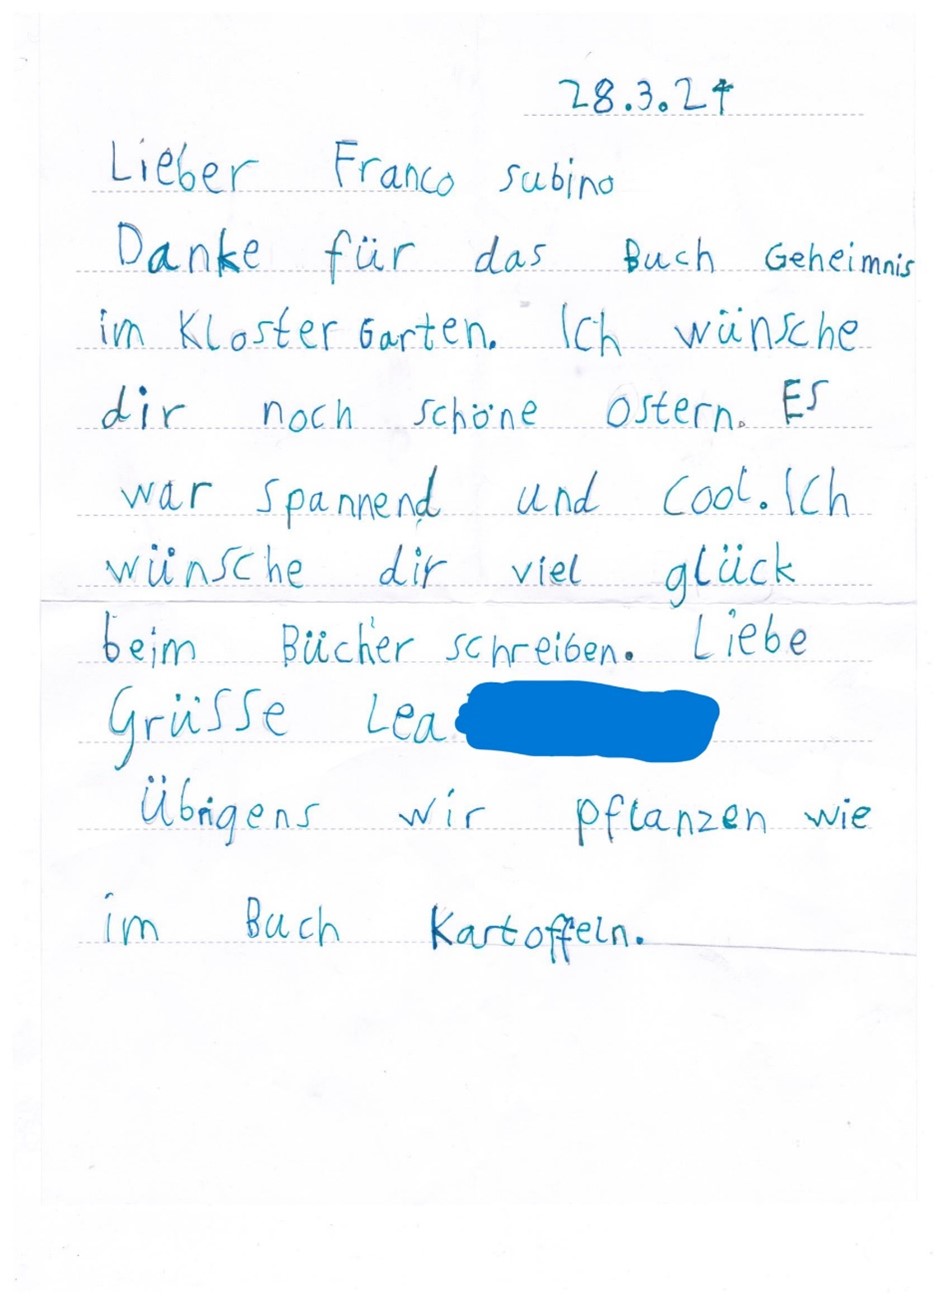 28.3.24
Lieber Franco subino
Danke für das Buch Geheimnis
im Kloster Garten. Ich wünsche
dir noch schöne ostern. Es
war spannend und cool. Ich
wünsche dir viel glück
beim Bücher schreiben. Liebe
Grüsse Lea
Übrigens wir pflanzen wie
im Buch Kartoffeln.